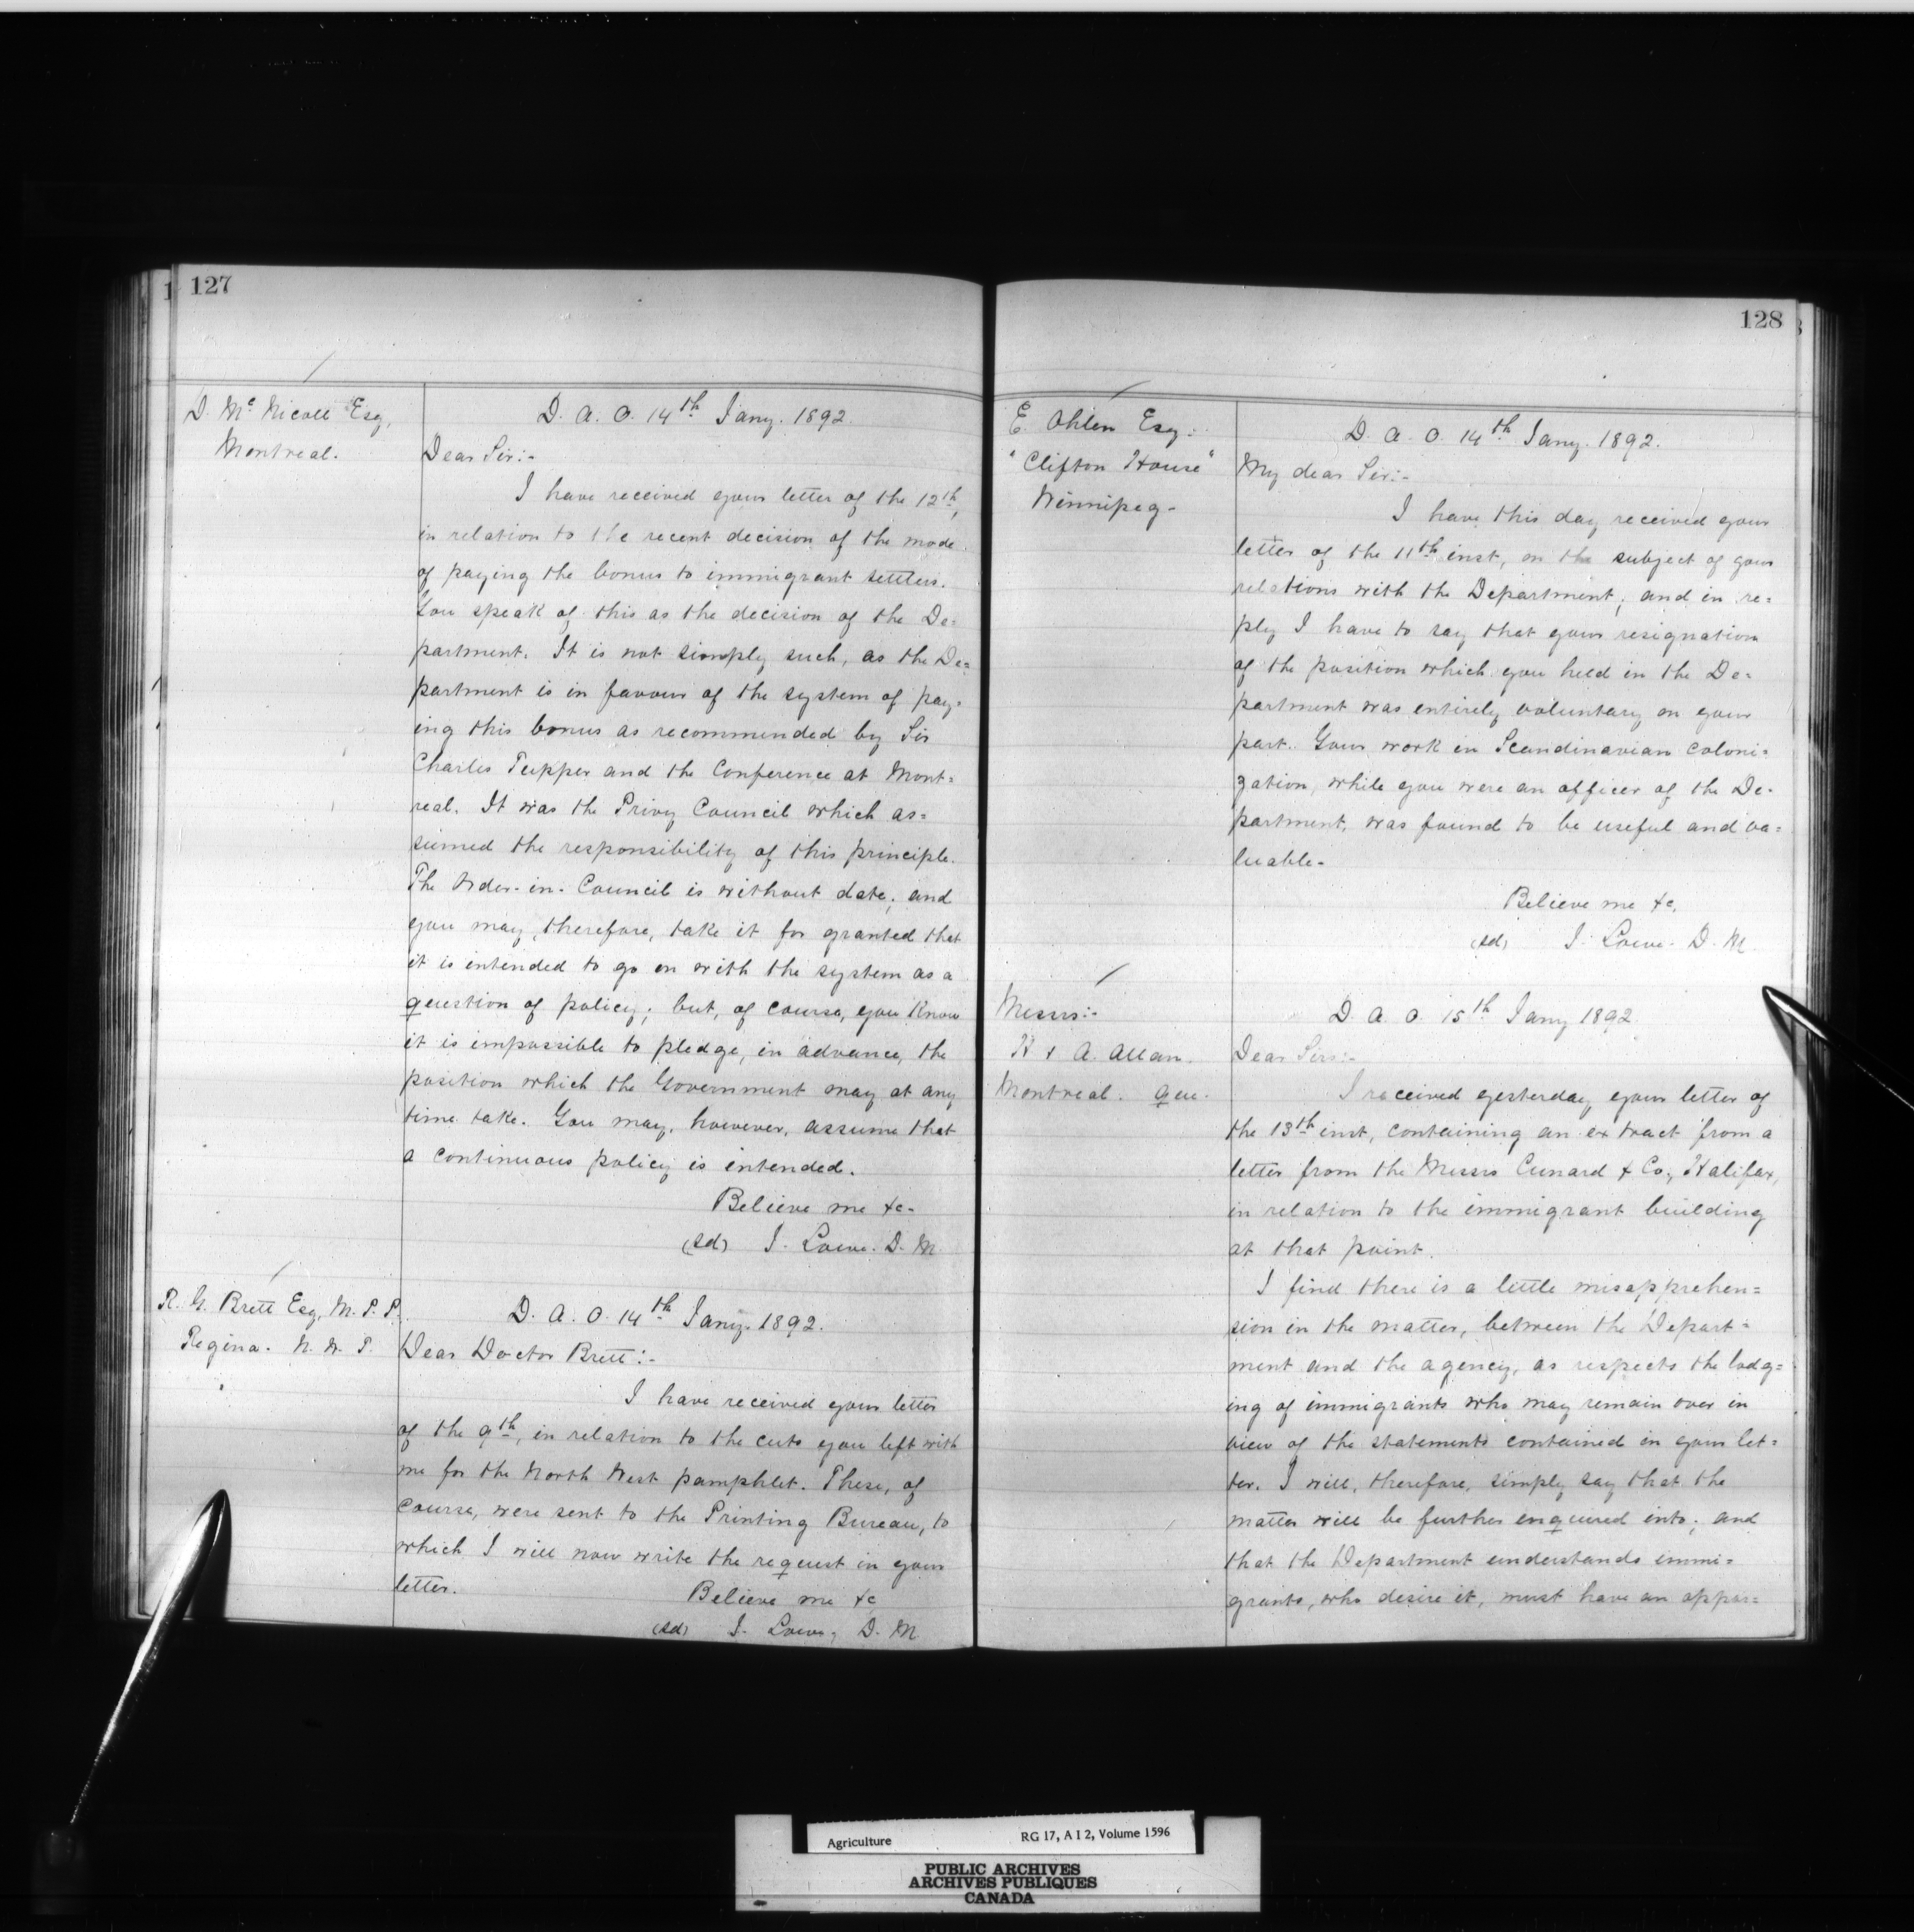 127
D. Mc Nicoll Esq,
Montreal.
D. A. O. 14th Jany. 1892.
Dear Sir:-
I have received your letter of the 12th,
in relation to the recent decision of the mode
of paying the bonus to immigrant settlers.
You speak of this as the decision of the De=
partment. It is not simply such, as the De=
partment is in favour of the system of pay=
ing this bonus as recommended by Sir
Charles Tupper and the Conference at Mont=
real. It was the Privy Council which as=
sumed the responsibility of this principle.
The Order-in-Council is without date; and
you may, therefore, take it for granted that
it is intended to go on with the system as a
question of policy; but, of course, you know
it is impossible to pledge, in advance, the
position which the Government may at any
time take. You may, however, assume that
a continuous policy is intended.
Believe me &c-
(sd) J. Lowe. D. M.
R. G. Brett Esq, M. P. P.
Regina. N. W. T.
D. A. O. 14th Jany. 1892.
Dear Doctor Brett:-
I have received your letter
of the 9th, in relation to the cuts you left with
me for the North West pamphlet. These, of
course, were sent to the Printing Bureau, to
which I will now write the request in your
letter.
Believe me &c
(sd) J. Lowe, D. M.
128
E. Ohlen Esq.
"Clifton House"
Winnipeg-
D. A. O. 14th Jany. 1892.
My dear Sir:-
I have this day received your
letter of the 11th inst, on the subject of your
relations with the Department; and in re=
ply I have to say that your resignation
of the position which you held in the De=
partment was entirely voluntary on your
part. Your work in Scandinavian coloni=
zation, while you were an officer of the De-
partment, was found to be useful and va=
luable-
Believe me &c.
(sd) J. Lowe. D. M.
Messrs:-
H & A. Allan.
Montreal. Que.
D. A. O. 15th Jany 1892.
Dear Sirs:-
I received yesterday, your letter of
the 13th inst, containing an extract from a
letter from the Messrs Cunard & Co., Halifax,
in relation to the immigrant building
at that point.
I find there is a little misapprehen=
sion in the matter, between the Depart=
ment and the agency, as respects the lodg=
ing of immigrants who may remain over in
view of the statements contained in your let=
ter. I will, therefore, simply say that the
matter will be further enquired into; and
that the Department understands immi=
grants, who desire it, must have an oppor=
Agriculture
RG 17, A 1 2, Volume 1596
PUBLIC ARCHIVES
ARCHIVES PUBLIQUES
CANADA